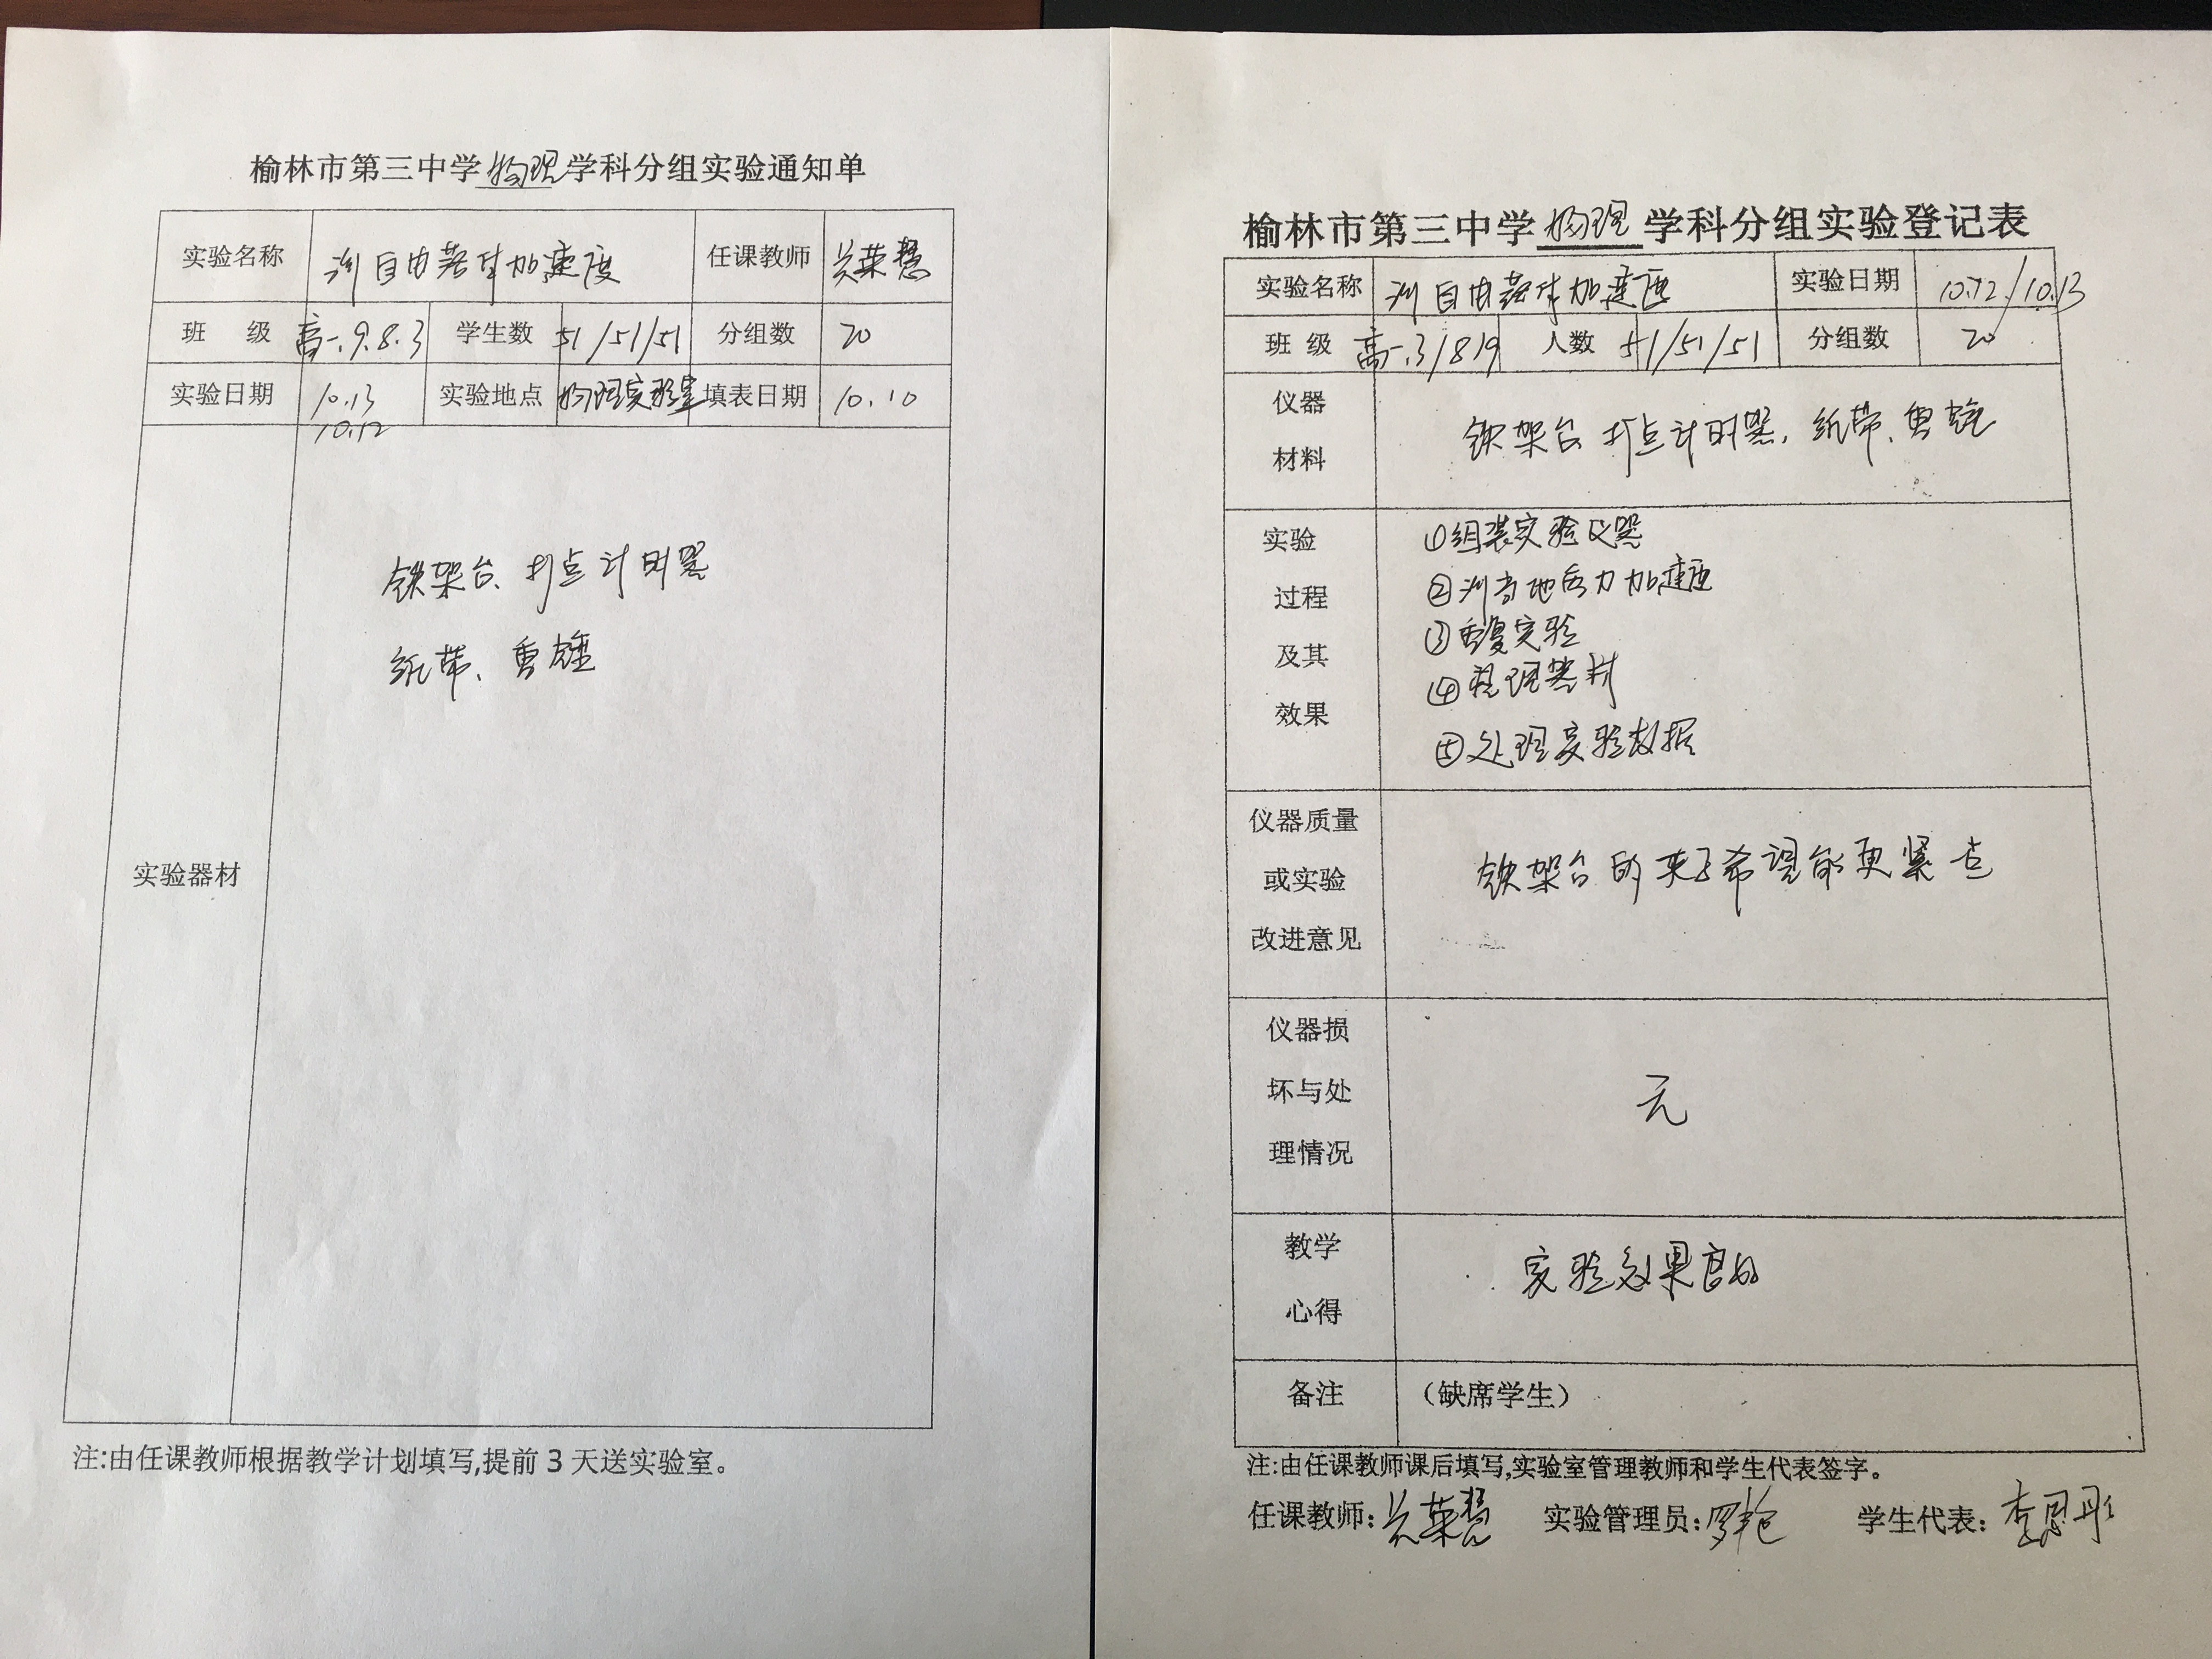 榆林市第三中学物理学科分组实验通知单
实验名称 测自由落体加速度 任课教师 吴荣慧
班 级 高一.9.8.3 学生数 51/51/51 分组数 20
实验日期 10.13 实验地点 物理实验室 填表日期 10.10
10.12
铁架台、打点计时器
纸带、重锤
实验器材
注:由任课教师根据教学计划填写,提前3天送实验室。
榆林市第三中学物理学科分组实验登记表
实验名称 测自由落体加速度 实验日期 10.12./10.13
班 级 高一.3/8/9 人数 51/51/51 分组数 20
仪器
材料
铁架台、打点计时器、纸带、重锤
实验
过程
及其
效果
①组装实验仪器
②测当地重力加速度
③重复实验
④整理器材
⑤处理实验数据
仪器质量
或实验
改进意见
铁架台的夹子希望能更紧点
仪器损
坏与处
理情况
无
教学
心得
实验效果良好
备注 (缺席学生)
注:由任课教师课后填写,实验室管理教师和学生代表签字。
任课教师: 吴荣慧 实验管理员: 罗 学生代表: 李